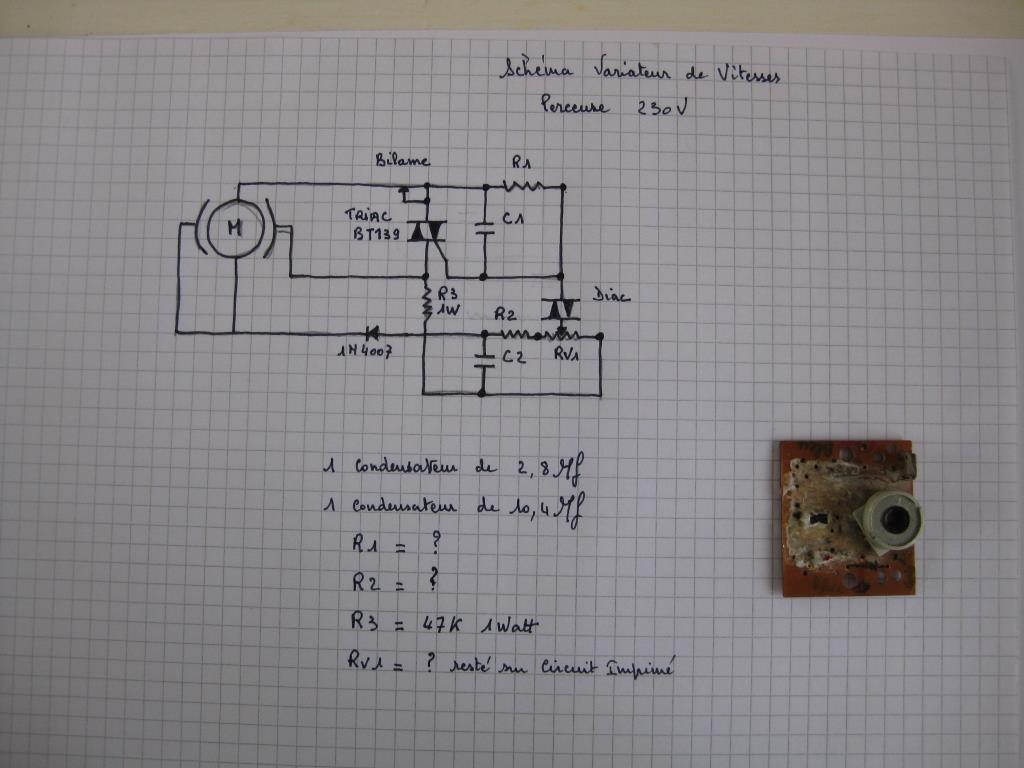 Schéma Variateur de Vitesses
Perceuse 230V
Bilame
R1
TRIAC
BT139
C1
M
R3
1W
Diac
R2
1N4007
C2
RV1
1 Condensateur de 2,8 Mf
1 Condensateur de 10,4 Mf
R1 = ?
R2 = ?
R3 = 47K 1Watt
RV1 = ? resté sur Circuit Imprimé